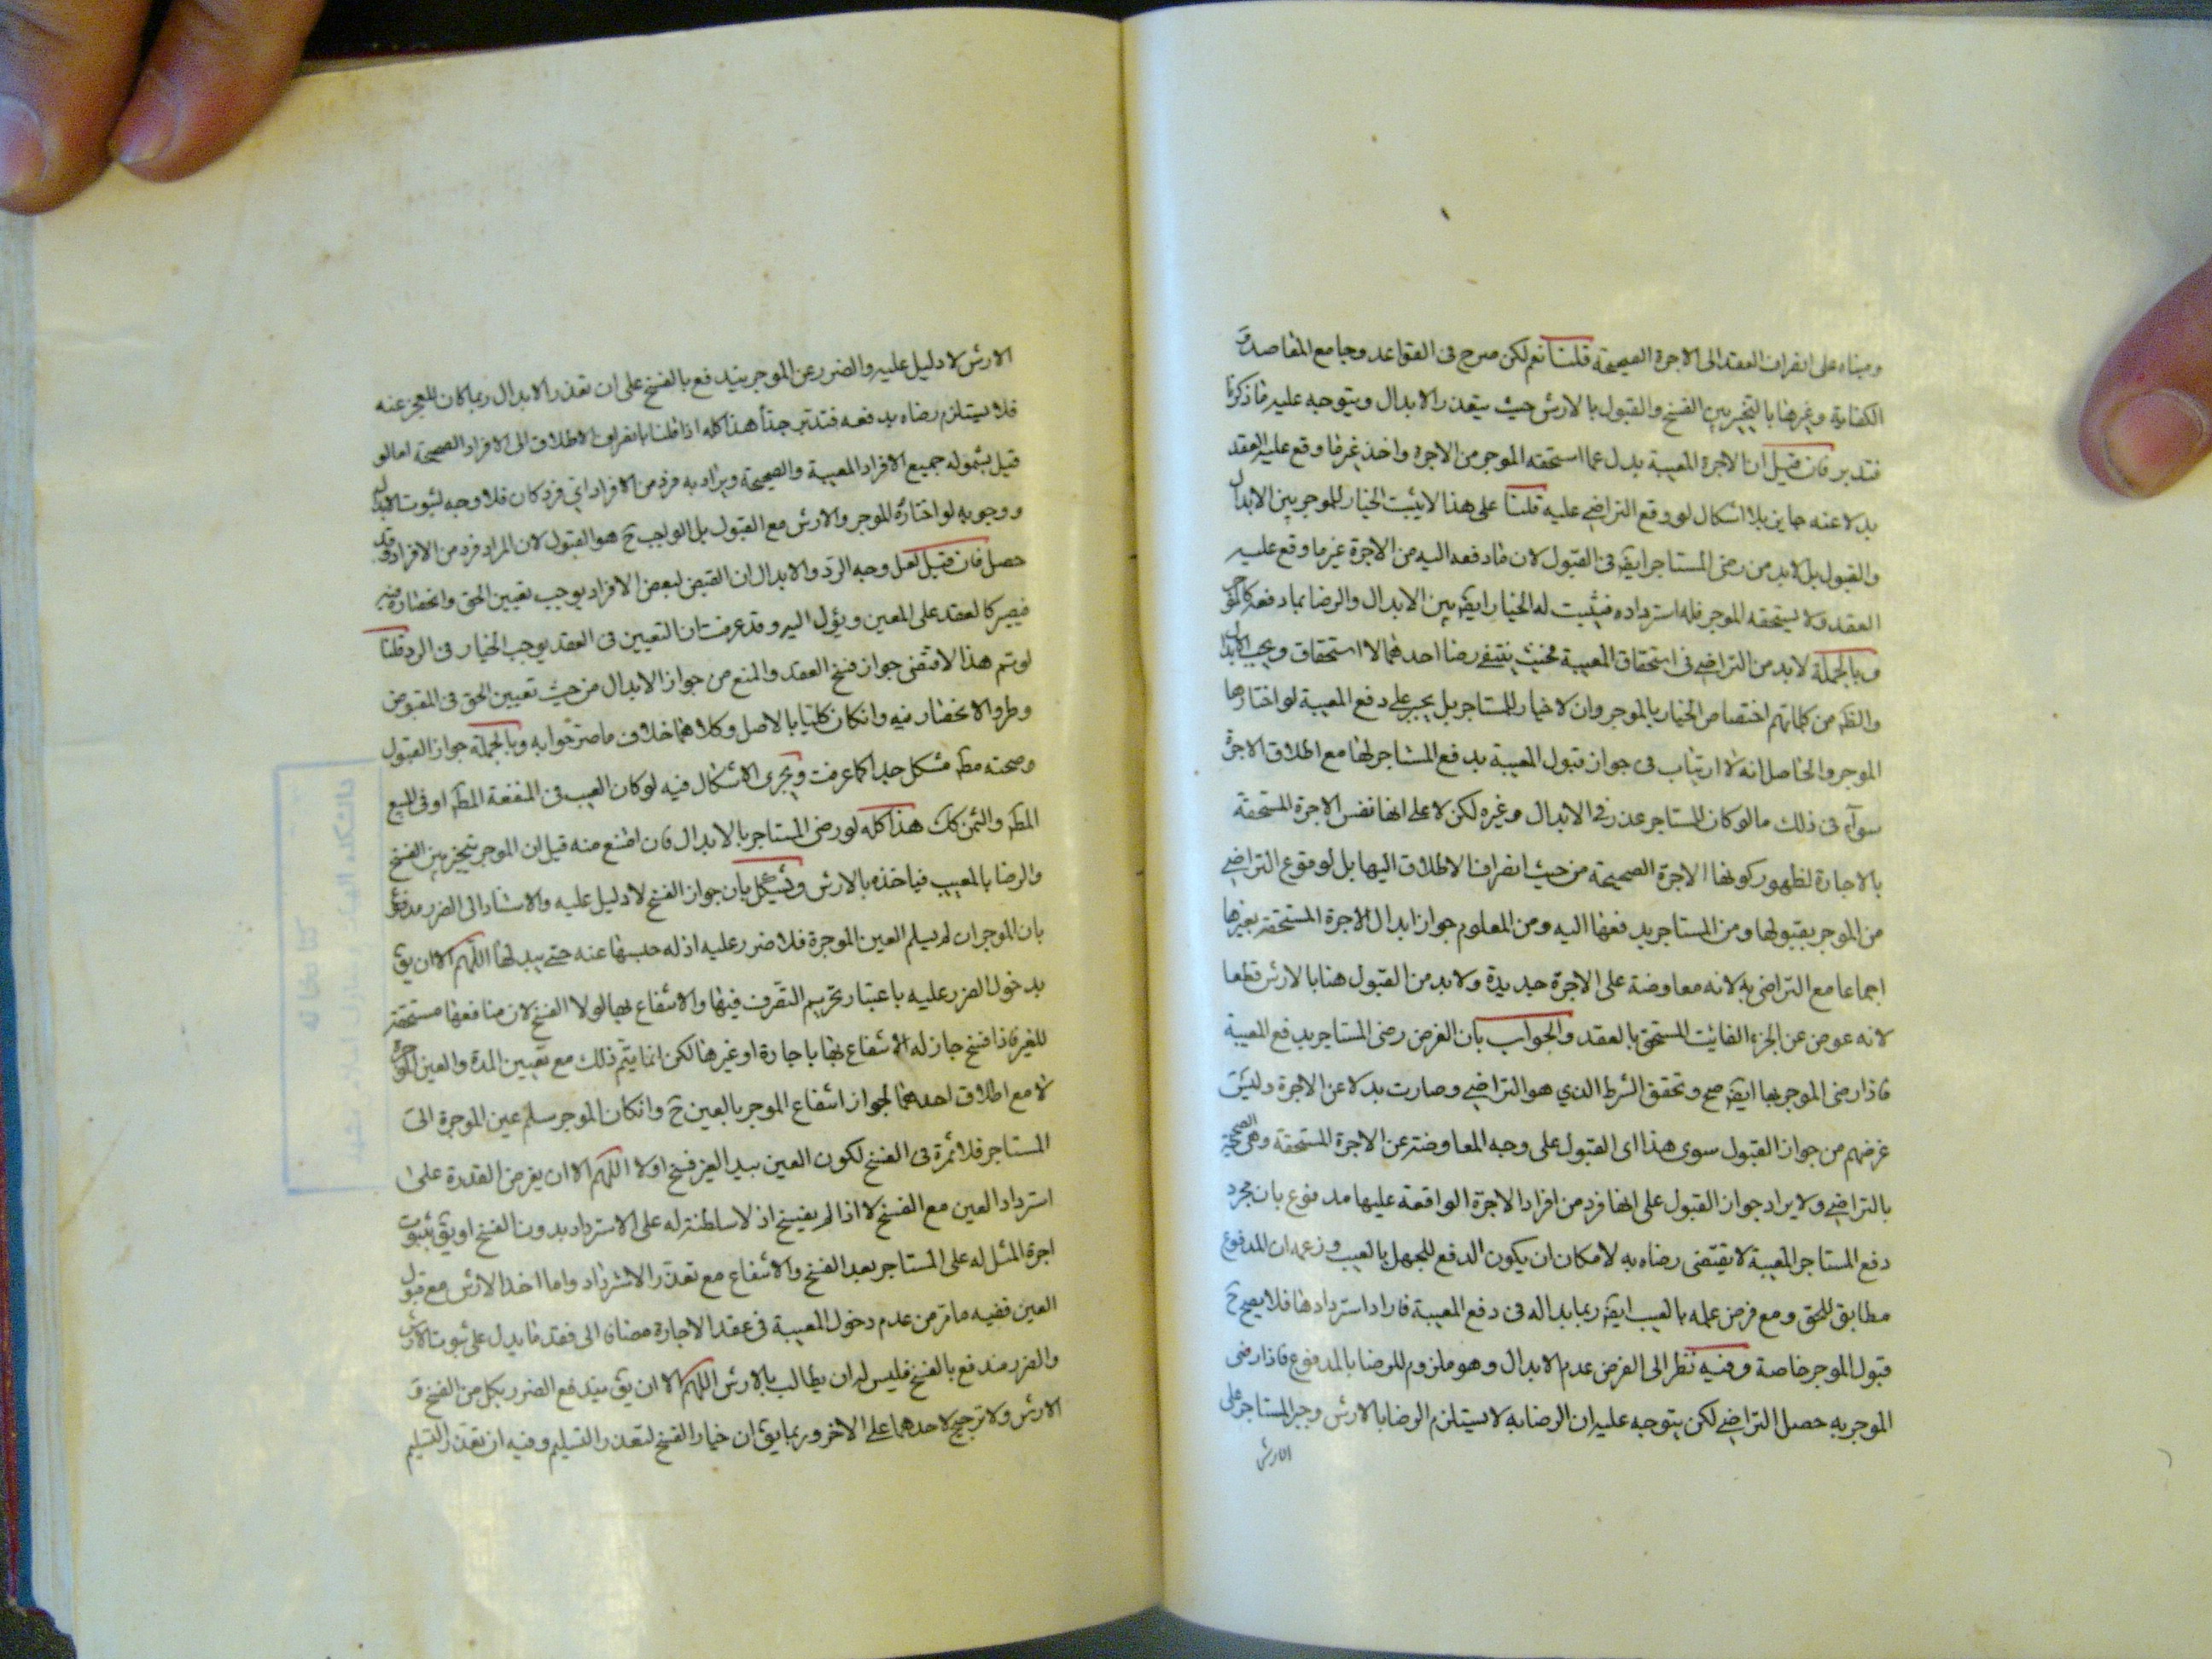 ومبناه على انصراف العقد الى الاجرة الصحيحة قلنا نعم لكن صرح فى القواعد وجامع المقاصد و
الكفاية وغيرها بالتخيير بين الفسخ والقبول بالارش حيث يتعذر الابدال ويتوجه عليه ما ذكرنا
فتدبر فان قيل ان الاجرة المعيبة بدل عما استحقه الموجر من الاجرة واخذ غير ما وقع عليه العقد
بدلا عنه جايز بلا اشكال لو وقع التراضي عليه قلنا على هذا لا يثبت الخيار للموجر بين الابدال
والقبول بل لابد من رضى المستاجر ايضا فى القبول لان ما دفعه اليه من الاجرة غير ما وقع عليه
العقد ولا يستحقه الموجر فله استرداده فيثبت له الخيار ايضا بين الابدال والرضا بما دفعه كالموجر
وبالجملة لابد من التراضي فى استحقاق المعيبة فحيث ينتفى رضا احدهما لا استحقاق ويجب الابدال
والظ من كلماتهم اختصاص الخيار بالموجر وان لا خيار للمستاجر بل يجبر على دفع المعيبة لو اختارها
الموجر والحاصل انه لا ارتياب فى جواز قبول المعيبة بدفع المستاجر لها مع اطلاق الاجرة
سواء فى ذلك ما لو كان للمستاجر عذر فى الابدال وغيره لكن لا على انها نفس الاجرة المستحقة
بالاجارة لظهور كونها الاجرة الصحيحة من حيث انصراف الاطلاق اليها بل لوقوع التراضي
من الموجر بقبولها ومن المستاجر بدفعها اليه ومن المعلوم جواز ابدال الاجرة المستحقة بغيرها
اجماعا مع التراضى به لانه معاوضة على الاجرة جديدة ولابد من القبول هنا بالارش قطعا
لانه عوض عن الجزء الفائت المستحق بالعقد والجواب بان الغرض رضى المستاجر بدفع المعيبة
فاذا رضى الموجر بها ايضا صح وتحقق الشرط الذي هو التراضي وصارت بدلا عن الاجرة وليس
غرضهم من جواز القبول سوى هذا اى القبول على وجه المعاوضة عن الاجرة المستحقة وهى الصحيحة
بالتراضي ولا يراد جواز القبول على انها فرد من افراد الاجرة الواقعة عليها مدفوع بان مجرد
دفع المستاجر المعيبة لا يقتضى رضاه به لامكان ان يكون الدفع للجهل بالعيب وزعمه ان المدفوع
مطابق للحق ومع فرض علمه بالعيب ايضا ربما بدا له فى دفع المعيبة فاراد استردادها فلا يصح ح
قبول الموجر خاصة وفيه نظر الى الفرض عدم الابدال وهو ملزوم للرضا بالمدفوع فاذا رضى
الموجر به حصل التراضي لكن يتوجه عليه ان الرضا به لا يستلزم الرضا بالارش وجبر المستاجر على
الارش
الارش لا دليل عليه والضرر عن الموجر يندفع بالفسخ على ان تعذر الابدال ربما كان للعجز عنه
فلا يستلزم رضاه بدفعه فتدبر جدا هذا كله اذا قلنا بانصراف الاطلاق الى الافراد الصحيحة اما لو
قيل بشموله جميع الافراد المعيبة والصحيحة ويراد به فرد من الافراد اى فرد كان فلا وجه لثبوت الابدال
ووجوبه لو اختاره الموجر والارش مع القبول بل الواجب ح هو القبول لان المراد فرد من الافراد وقد
حصل فان قيل لعل وجه الرد والابدال ان القبض لبعض الافراد يوجب تعيين الحق وانحصاره فيه
فيصير كالعقد على المعين ويؤل اليه وقد عرفت ان التعيين فى العقد يوجب الخيار فى الرد قلنا
لو تم هذا لاقتضى جواز فسخ العقد والمنع من جواز الابدال من حيث تعيين الحق فى المقبوض
وطرو الانحصار فيه وان كان كليا بالاصل وكلاهما خلاف ما صرحوا به وبالجملة جواز القبول
وصحته مط مشكل جدا كما عرفت ويجرى الاشكال فيه لو كان العيب فى المنفعة المط او فى المبيع
المط والثمن كك هذا كله لو رضى المستاجر بالابدال فان امتنع منه قيل ان الموجر يتخير بين الفسخ
والرضا بالمعيب فياخذه بالارش ويشكل بان جواز الفسخ لا دليل عليه والاستناد الى الضرر مدفوع
بان الموجر ان لم يسلم العين الموجرة فلا ضرر عليه اذ له حبسها عنه حتى يبدلها اللهم الا ان يق
بدخول الضرر عليه باعتبار تحريم التصرف فيها والانتفاع بها لولا الفسخ لان منافعها مستحقة
للغير فاذا فسخ جاز له الانتفاع بها باجارة او غيرها لكن انما يتم ذلك مع تعيين المدة والعين الموجرة
لا مع اطلاق احدهما لجواز انتفاع الموجر بالعين ح وان كان الموجر سلم عين الموجرة الى
المستاجر فلا ثمرة فى الفسخ لكون العين بيد الغير فسخ اولا اللهم الا ان يفرض القدرة على
استرداد العين مع الفسخ لا اذا لم يفسخ اذ لا سلطنة له على الاسترداد بدون الفسخ او يق بثبوت
اجرة المثل له على المستاجر بعد الفسخ والانتفاع مع تعذر الاسترداد واما اخذ الارش مع قبول
العين ففيه ما مر من عدم دخول المعيبة فى عقد الاجارة مضافا الى فقد ما يدل على ثبوت الارش
والضرر مندفع بالفسخ فليس له ان يطالب بالارش اللهم الا ان يق يندفع الضرر بكل من الفسخ و
الارش ولا ترجيح لاحدهما على الاخر وربما يق ان خيار الفسخ لتعذر التسليم وفيه ان تعذر التسليم